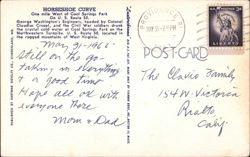 HORSESHOE CURVE
One mile West of Cool Springs Park
On U. S. Route 50.
George Washington's Engineers, headed by Colonel
Claudius Crozet, and the Civil War soldiers drank
the crystal cold water at Cool Springs Park on the
Northwestern Turnpike, U. S. Route 50, located in
the rugged mountains of West Virginia.
May 31-1966
Still on the go-
taking in everything
& a good time
Hope all ok with
everyone there
Mom & Dad
POST CARD
LIBERTY
The Clavie Family,
154 W. Victoria
Rialto,
Calif.